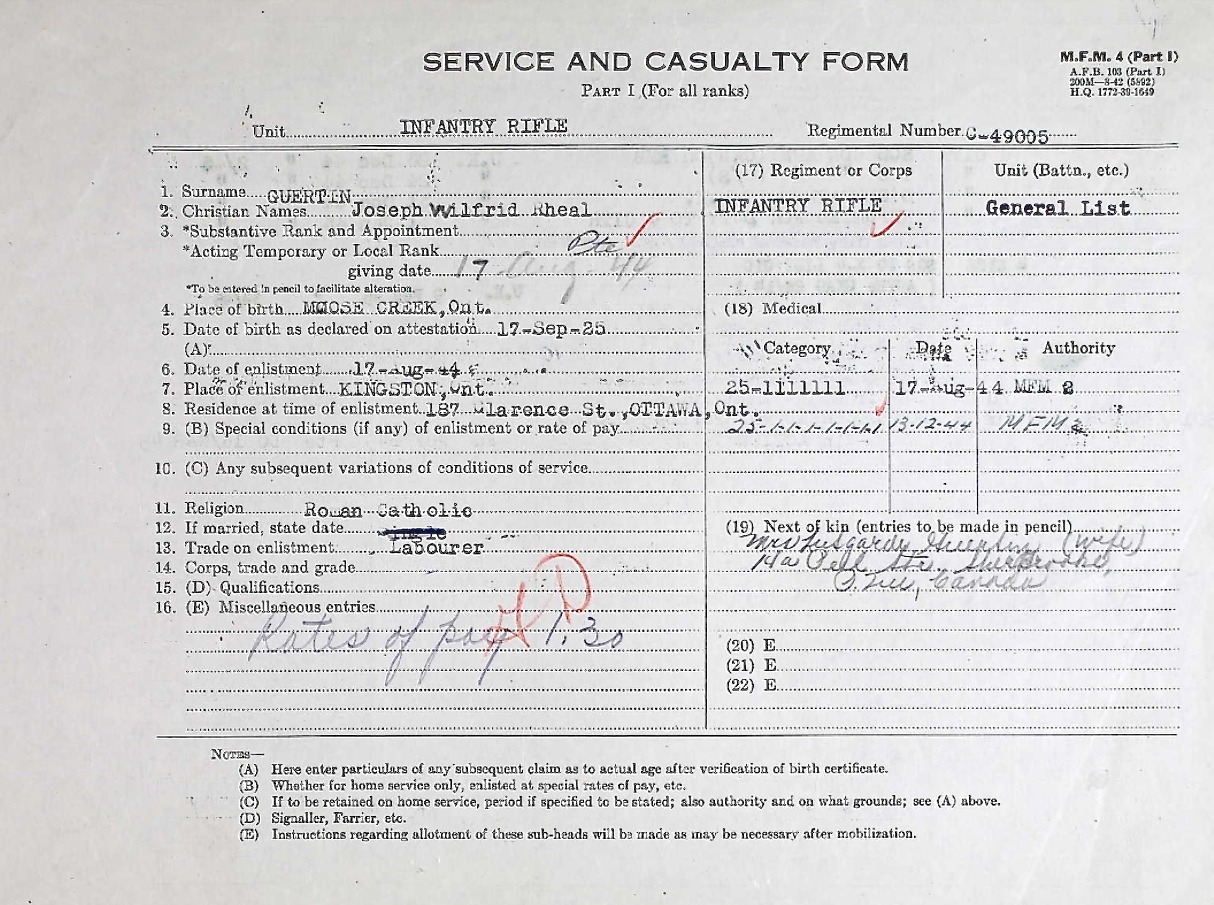 SERVICE AND CASUALTY FORM
M.F.M. 4 (Part I)
A.F.B. 103 (Part I)
200M—8-42 (5892)
H.Q. 1772-39-1649
PART I (For all ranks)
Unit INFANTRY RIFLE Regimental Number C-49005
1. Surname GUERTIN
2. Christian Names Joseph Wilfrid Rheal
3. *Substantive Rank and Appointment
*Acting Temporary or Local Rank Pte
giving date 17 Aug-44
*To be entered in pencil to facilitate alteration.
4. Place of birth MOOSE CREEK, Ont.
5. Date of birth as declared on attestation 17-Sep-25
(A)
6. Date of enlistment 17-Aug-44
7. Place of enlistment KINGSTON, Ont.
8. Residence at time of enlistment 187 Clarence St., OTTAWA, Ont.
9. (B) Special conditions (if any) of enlistment or rate of pay
10. (C) Any subsequent variations of conditions of service
11. Religion Roman Catholic
12. If married, state date
13. Trade on enlistment Labourer
14. Corps, trade and grade
15. (D) Qualifications
16. (E) Miscellaneous entries
Rates of pay 1.30
(17) Regiment or Corps Unit (Battn., etc.)
INFANTRY RIFLE General List
(18) Medical
Category Date Authority
25-1111111 17-Aug-44 MFM 2
25-1-1-1-1-1-1-1 13-12-44 MFM 2
(19) Next of kin (entries to be made in pencil)
Mrs Lusgarde Guertin (wife)
14a Pell Str. Sherbrooke,
Que, Canada
(20) E
(21) E
(22) E
NOTES—
(A) Here enter particulars of any subsequent claim as to actual age after verification of birth certificate.
(B) Whether for home service only, enlisted at special rates of pay, etc.
(C) If to be retained on home service, period if specified to be stated; also authority and on what grounds; see (A) above.
(D) Signaller, Farrier, etc.
(E) Instructions regarding allotment of these sub-heads will be made as may be necessary after mobilization.